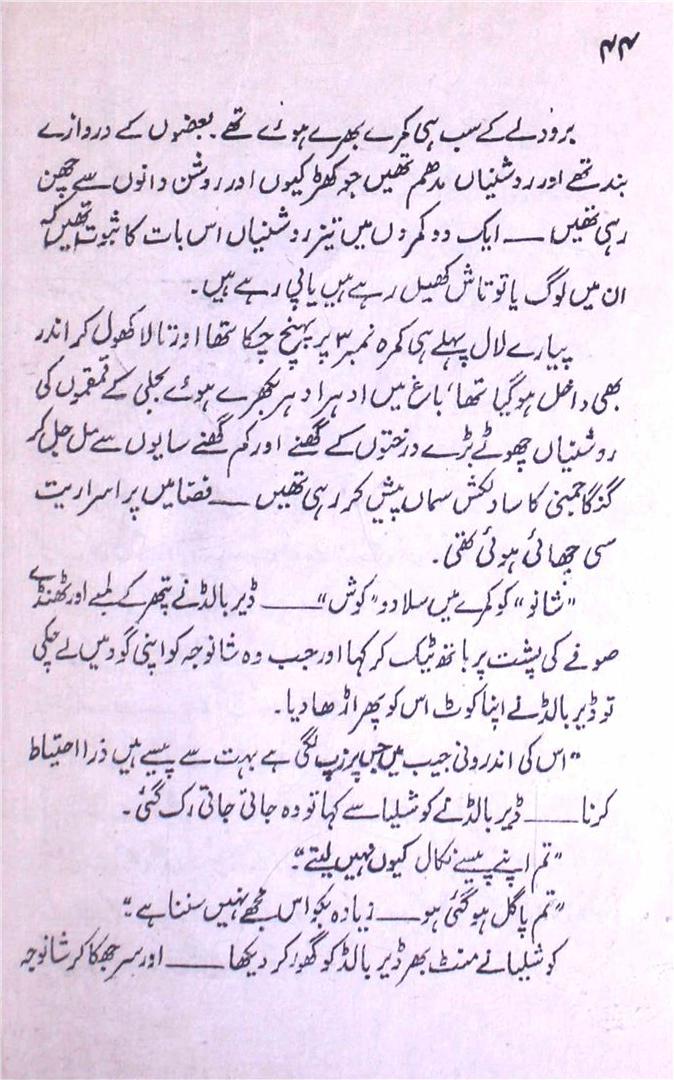 ۴۴
برودلے کے سب ہی کمرے بھرے ہوئے تھے۔ بعضوں کے دروازے
بند تھے اور روشنیاں مدھم تھیں جو کھڑکیوں اور روشن دانوں سے چھن
رہی تھیں —— ایک دو کمروں میں تیز روشنیاں اس بات کا ثبوت تھیں کہ
ان میں لوگ یا تو تاش کھیل رہے ہیں یا پی رہے ہیں۔
پیارے لال پہلے ہی کمرہ نمبر ۳ پر پہنچ چکا تھا اور تالا کھول کر اندر
بھی داخل ہو گیا تھا، باغ میں ادہر ادہر بکھرے ہوئے بجلی کے قمقموں کی
روشنیاں چھوٹے بڑے درختوں کے گھنے اور کم گھنے سایوں سے مل جل کر
گنگا جمنی کا سا دلکش سماں پیش کر رہی تھیں —— فضا میں پراسراریت
سی چھائی ہوئی تھی۔
"شانو" کو کمرے میں سلا دو "کوش" —— ڈیر بالڈ نے پتھر کے لمبے اور ٹھنڈے
صوفے کی پشت پر ہاتھ ٹیک کر کہا اور جب وہ شانوجہ کو اپنی گود میں لے چکی
تو ڈیر بالڈ نے اپنا کوٹ اس کو پھر اڑھا دیا۔
"اس کی اندرونی جیب میں جس پر زپ لگی ہے بہت سے پیسے ہیں ذرا احتیاط
کرنا —— ڈیر بالڈ نے کوشلیا سے کہا تو وہ جاتی جاتی رک گئی۔
"تم اپنے پیسے نکال کیوں نہیں لیتے"۔
"تم پاگل ہو گئی ہو —— زیادہ بکواس مجھے نہیں سننا ہے"۔
کوشلیا نے منٹ بھر ڈیر بالڈ کو گھور کر دیکھا —— اور سر جھکا کر شانوجہ